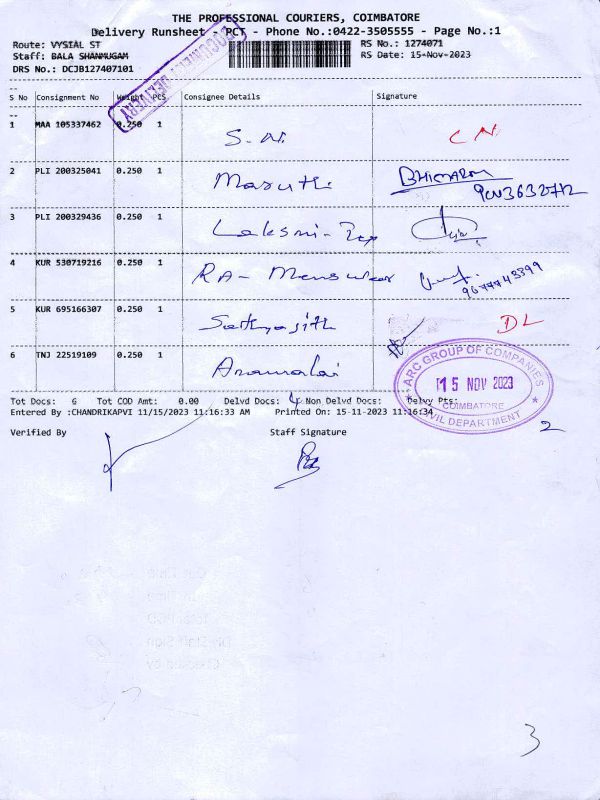 THE PROFESSIONAL COURIERS, COIMBATORE
Delivery Runsheet - PCT - Phone No.:0422-3505555 - Page No.:1
Route: VYSIAL ST
RS No.: 1274071
Staff: BALA SHANMUGAM
RS Date: 15-Nov-2023
DRS No.: DCJB127407101
S No Consignment No Weight PCS Consignee Details Signature
1 MAA 105337462 0.250 1 S. N. C N
2 PLI 200325041 0.250 1 Maruthi
3 PLI 200329436 0.250 1 Laksmi-
4 KUR 530719216 0.250 1 RA- Menswear 9677743399
5 KUR 695166307 0.250 1 Sathyajith DL
6 TNJ 22519109 0.250 1 Annamalai
ARC GROUP OF COMPANIES
15 NOV 2023
COIMBATORE
CIVIL DEPARTMENT
Tot Docs: 6 Tot COD Amt: 0.00 Delvd Docs: 4 Non Delvd Docs: Delvy Pts:
Entered By :CHANDRIKAPVI 11/15/2023 11:16:33 AM Printed On: 15-11-2023 11:16:34
2
Verified By Staff Signature
3